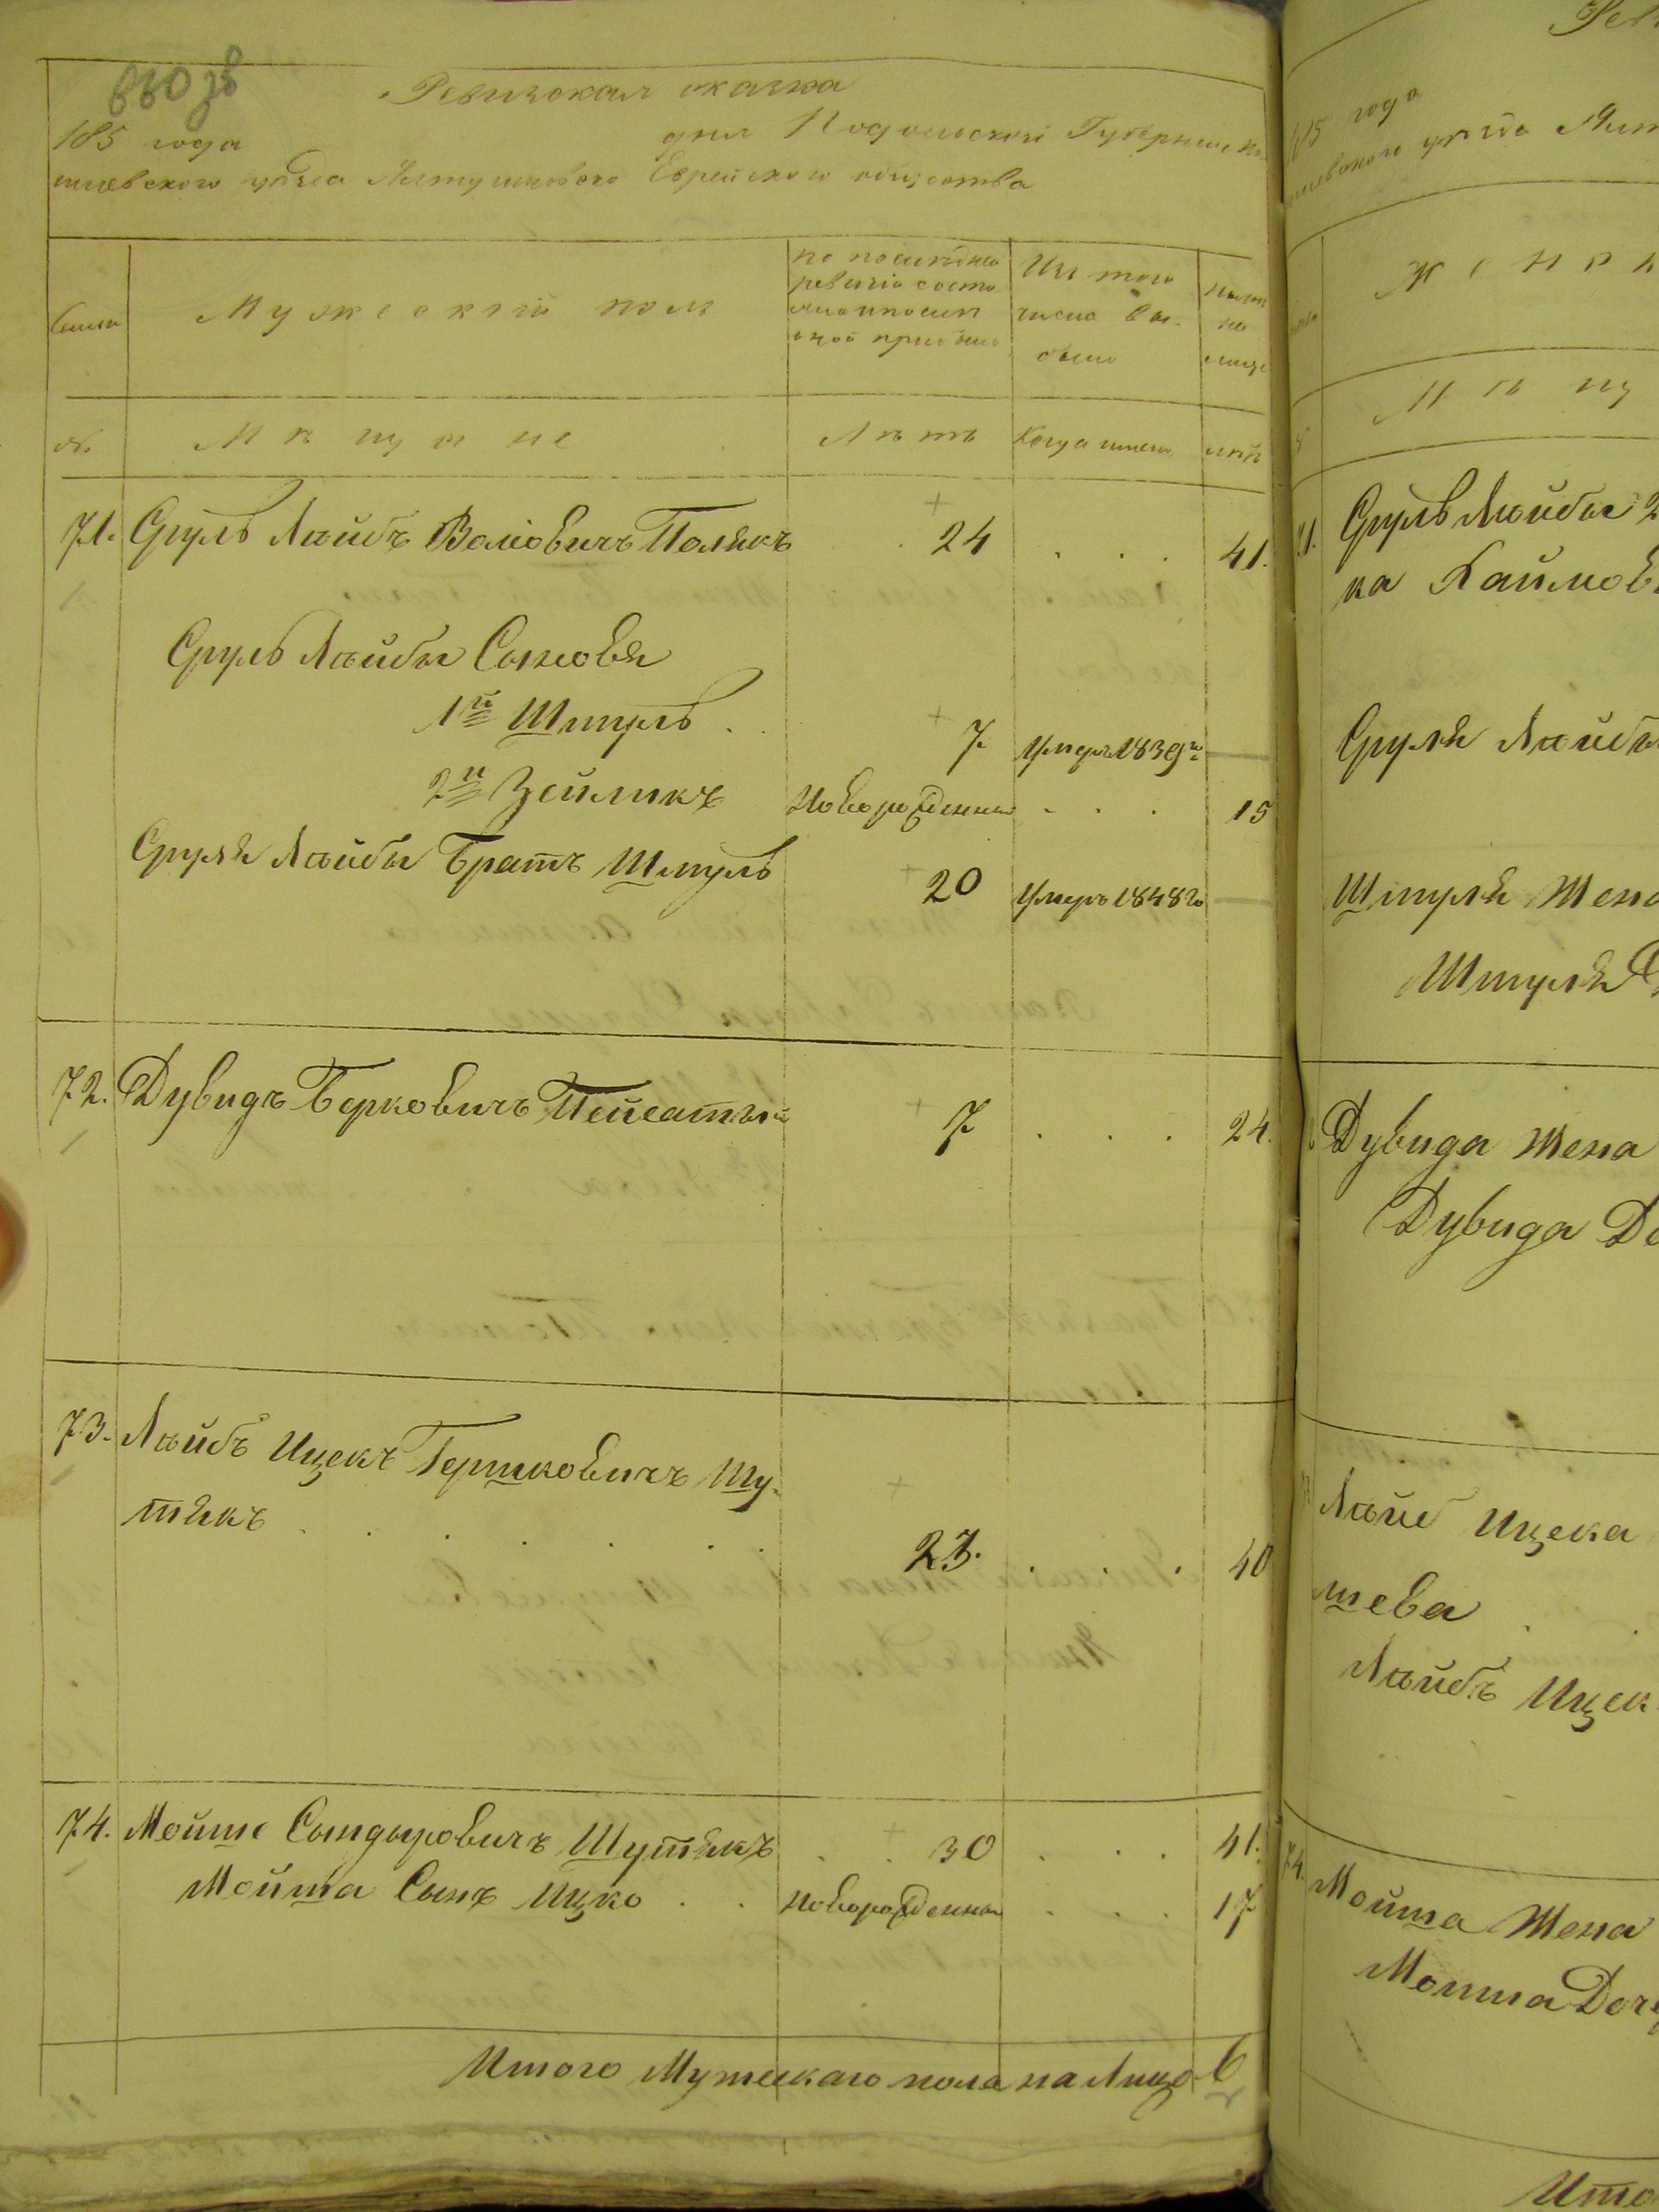 660 зв
Ревизская сказка
185 года
дня Подольской Губернии Мо-
гилевского уезда Ялтушковского Еврейского общества
Семьи
Мужеский пол
по последней
ревизии состо
яло и после
оной прибыло
Из того
числа вы-
было
ныне
на
лице
№.
Мѣщане
Лѣтъ
Когда имено
лѣтъ
71. Сруль Лайбъ Волковичъ Полякъ 24 . . . 41.
Сруль Лайбы Сыновья
1й Шмуль . . 7. Умеръ 1839го
2й Зейликъ Новорожденный . . . 15
Сруля Лайбы Братъ Шмуль 20 Умеръ 1848го
72. Дувидъ Берковичъ Пейсатый 7 . . . 24.
73. Лайбъ Ицекъ Гершковичъ Шу-
тякъ . . . . . . 23. . . . 40
74. Мойше Сындыровичъ Шутякъ . . 30 . . . 41.
Мойша Сынъ Ицко . . Новорожденный . . . 17
Итого Мужескаго пола на Лицо 6
года
уезда Ялт
Женск
Мѣщ
71. Сруль Лайбы
ка Хаимов
Сруля Лайбы
Шмуля Жена
Шмуля
Дувида жена
Дувида До
Лайб Ицека
шева
Лайбъ Ицек
74. Мойша Жена
Мойша Доч
Ито